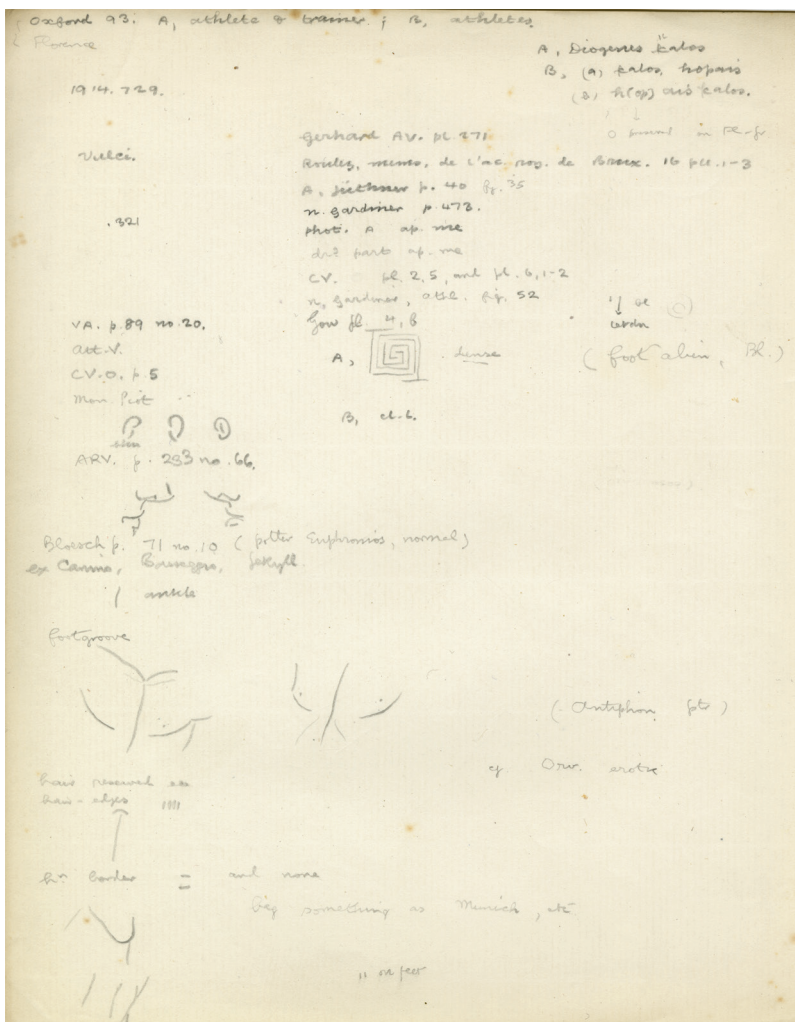 Oxford 93. A, athlete & trainer; B, athletes.
Florence
A, Diogenes kalos
B, (a) kalos, hopais
(b) h(op) ais kalos.
1914.729.
Gerhard AV. pl. 271
Vulci.
Roulez, mems. de l'ac. roy. de Brux. 16 pll. 1-3
A, Jüthner p. 40 fig. 35
N. Gardiner p. 473.
.321
phot. A ap. me
part ap. me
CV. pl. 2, 5, and pl. 6, 1-2
N. Gardiner, athl. fig. 52
VA. p. 89 no. 20.
pl. 4, b
Att. V.
A, dense
(foot alien, Bl.)
CV. O. p. 5
Mon. Piot
B, cl. b.
ARV. p. 233 no. 66.
Bloesch p. 71 no. 10 (potter Euphronios, normal)
ex Canino, Jekyll.
ankle
footgroove
(Antiphon ptr)
cf Orv. erotic
hair reserved
hair-edges
hn border = and none
something as Munich, etc
on feet